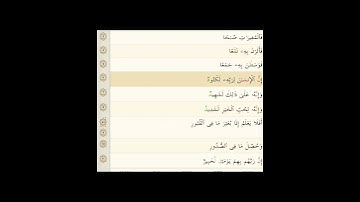 فَٱلْمُغِيرَٰتِ صُبْحًا
فَأَثَرْنَ بِهِۦ نَقْعًا
فَوَسَطْنَ بِهِۦ جَمْعًا
إِنَّ ٱلْإِنسَٰنَ لِرَبِّهِۦ لَكَنُودٌ
وَإِنَّهُۥ عَلَىٰ ذَٰلِكَ لَشَهِيدٌ
وَإِنَّهُۥ لِحُبِّ ٱلْخَيْرِ لَشَدِيدٌ
أَفَلَا يَعْلَمُ إِذَا بُعْثِرَ مَا فِى ٱلْقُبُورِ
وَحُصِّلَ مَا فِى ٱلصُّدُورِ
إِنَّ رَبَّهُم بِهِمْ يَوْمَئِذٍ لَّخَبِيرٌۢ